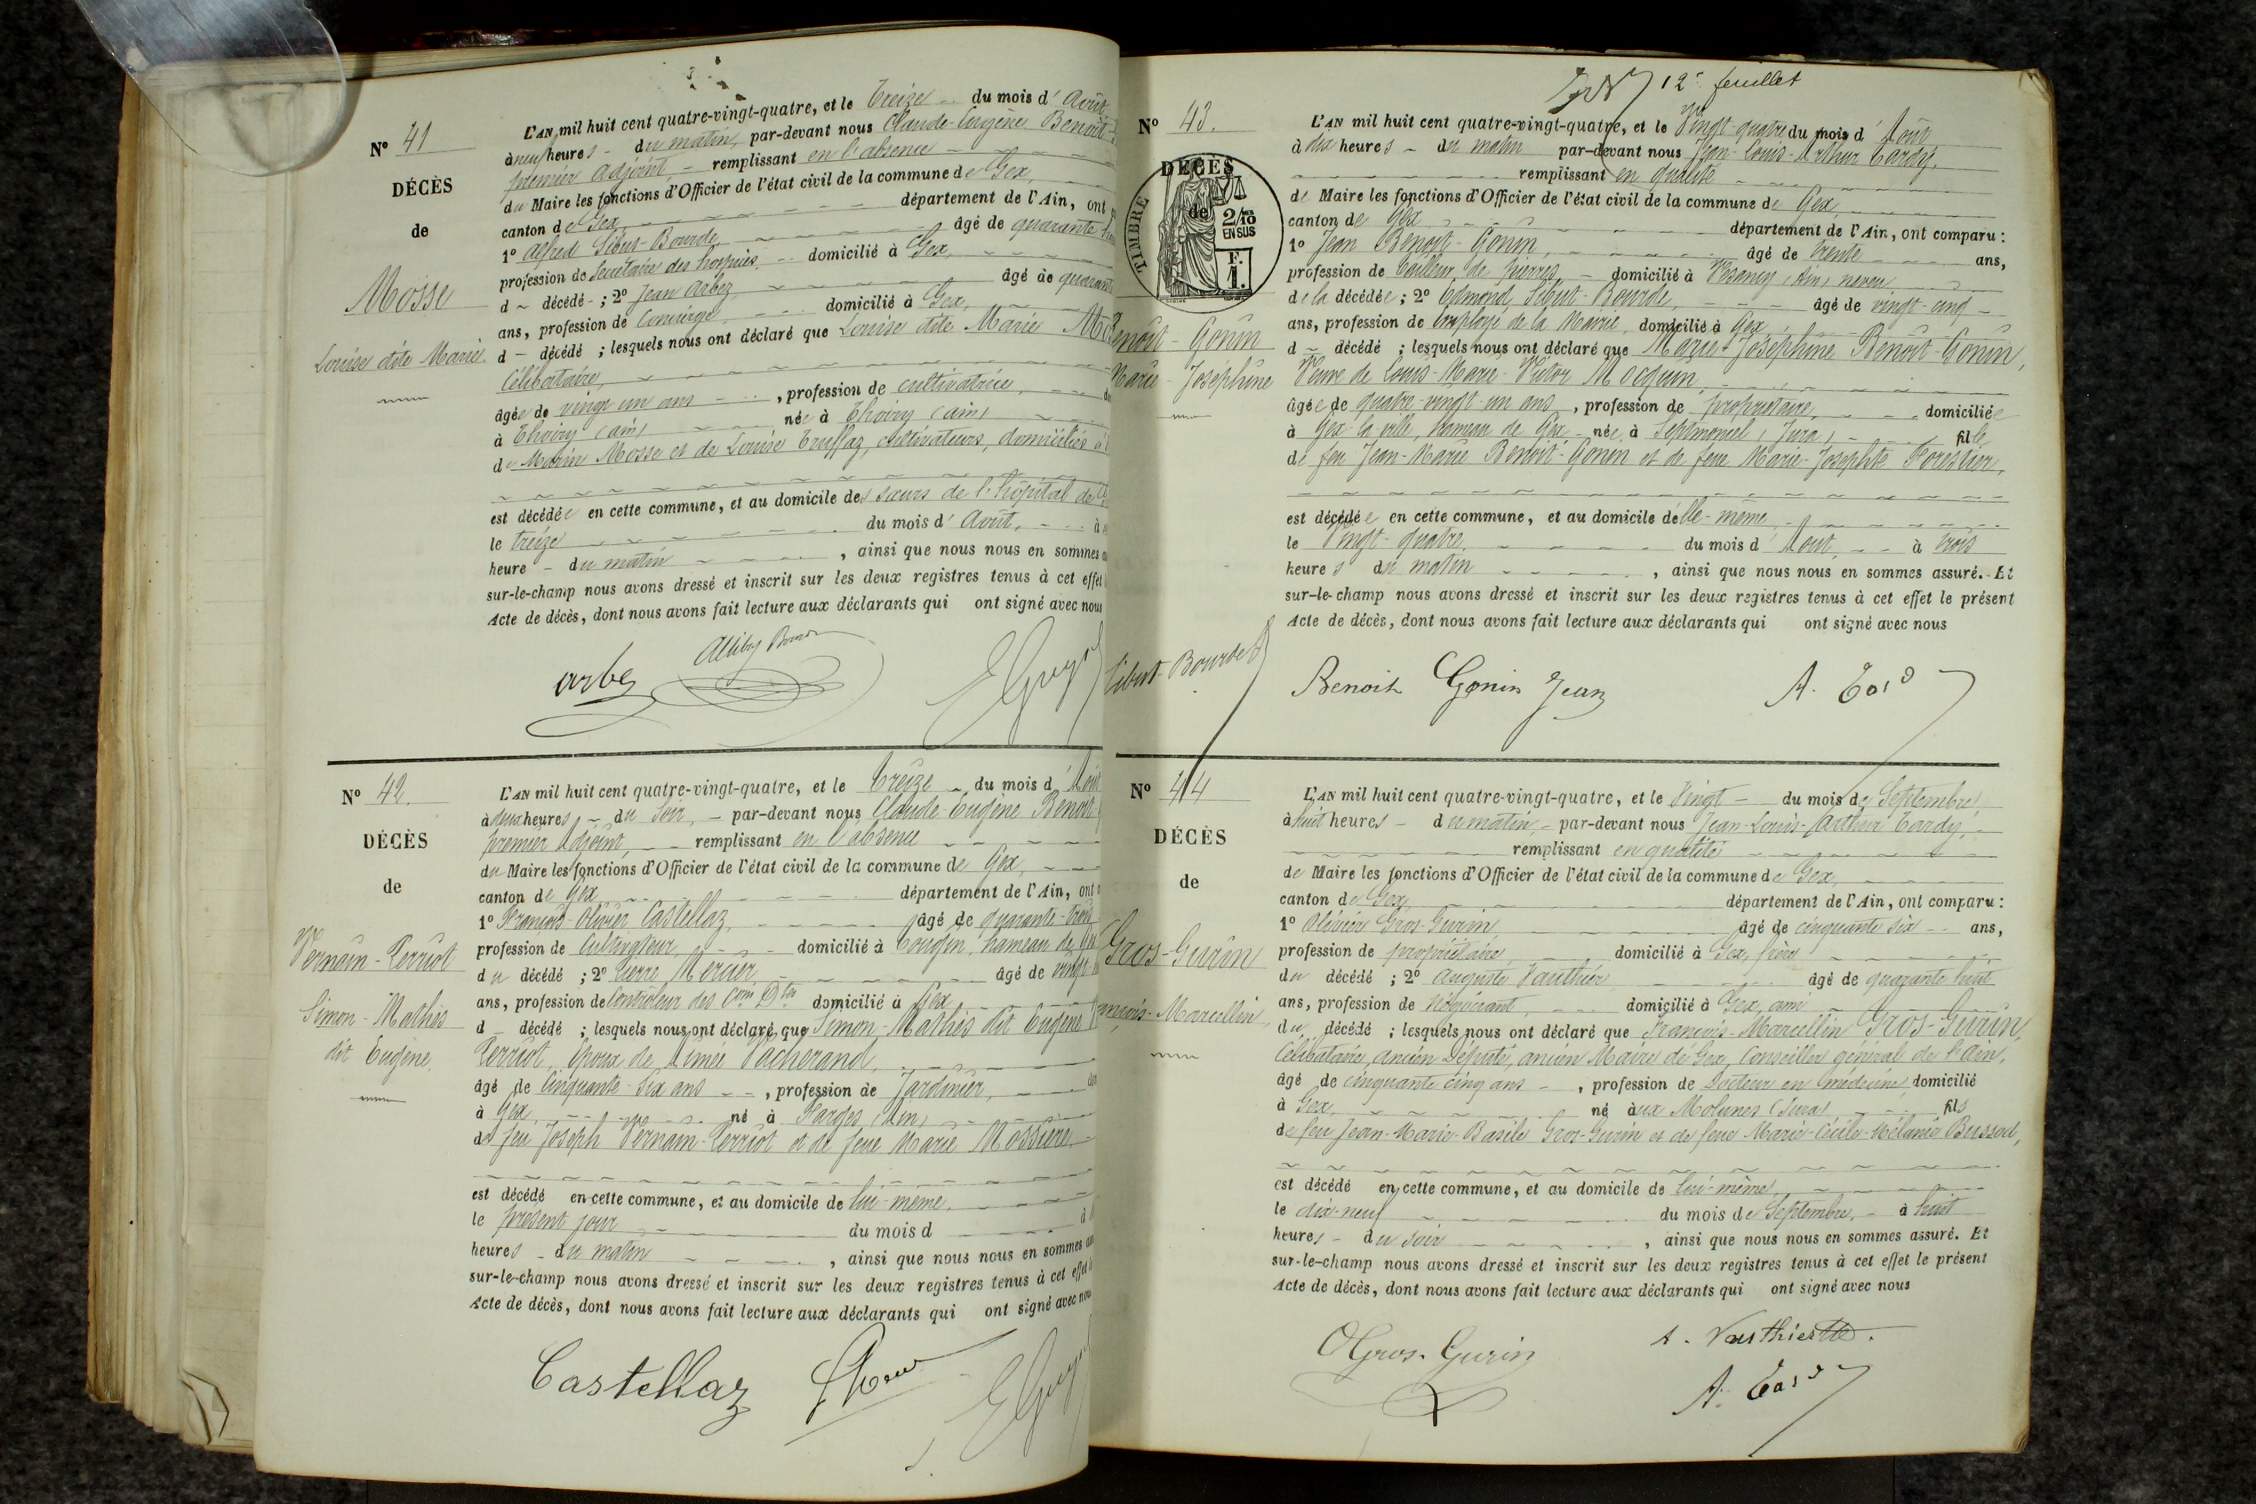 Nº 41
DÉCÈS
de
Mosse
Louise dite Marie
L'AN mil huit cent quatre-vingt-quatre, et le Treize du mois d'Août
à neuf heures du matin, par-devant nous Claude-Eugène Benoît
premier adjoint, remplissant en l'absence
du Maire les fonctions d'Officier de l'état civil de la commune de Gex,
canton de Gex, département de l'Ain, ont
1º Alfred Sibut-Bourde, âgé de quarante
profession de Secrétaire des hospices, domicilié à Gex,
d décédé ; 2º Jean Arbez âgé de quarante
ans, profession de Concierge domicilié à Gex,
d décédé ; lesquels nous ont déclaré que Louise dite Marie
Célibataire,
âgée de vingt un ans, profession de cultivatrice,
à Thoiry (Ain) née à Thoiry (Ain)
de Marin Mosse et de Louise Truffaz, cultivateurs, domiciliés à
est décédée en cette commune, et au domicile des sœurs de l'hôpital de
le treize du mois d'Août, à
heure du matin, ainsi que nous nous en sommes
sur-le-champ nous avons dressé et inscrit sur les deux registres tenus à cet effet
Acte de décès, dont nous avons fait lecture aux déclarants qui ont signé avec nous
arbez
Nº 42.
DÉCÈS
de
Vernain-Perriot
Simon-Mathès
dit Eugène.
L'AN mil huit cent quatre-vingt-quatre, et le Treize du mois d'Août
à deux heures du soir, par-devant nous Claude-Eugène Benoît
premier Adjoint, remplissant en l'absence
du Maire les fonctions d'Officier de l'état civil de la commune de Gex,
canton de Gex département de l'Ain, ont
1º François-Olivier Castellaz, âgé de quarante-trois
profession de Cultivateur, domicilié à Tougin, hameau de
du décédé ; 2º Pierre Mercier, âgé de vingt
ans, profession de Contrôleur des domicilié à Gex
d décédé ; lesquels nous ont déclaré que Simon-Mathès dit Eugène
Perriot, époux de Aimée Vacherand,
âgé de Cinquante-six ans, profession de Jardinier,
à Gex né à Farges (Ain)
de feu Joseph Vernain-Perriot et de feue Marie Mossière
est décédé en cette commune, et au domicile de lui-même.
le présent jour du mois d
heures du matin, ainsi que nous nous en sommes
sur-le-champ nous avons dressé et inscrit sur les deux registres tenus à cet effet
Acte de décès, dont nous avons fait lecture aux déclarants qui ont signé avec nous
Castellaz
12e feuillet
Nº 43.
DÉCÈS
de
TIMBRE
2/10 EN SUS
1 F.
Benoît-Gonin
Marie-Joséphine
L'AN mil huit cent quatre-vingt-quatre, et le Vingt-quatre du mois d'Août
à dix heures du matin par-devant nous Jean-Louis-Arthur Tardy,
remplissant en qualité
de Maire les fonctions d'Officier de l'état civil de la commune de Gex,
canton de Gex département de l'Ain, ont comparu :
1º Jean Benoît-Gonin, âgé de trente ans,
profession de tailleur de pierres, domicilié à Vesancy (Ain) neveu
de la décédée ; 2º Edmond Sibut-Bourde, âgé de vingt-cinq
ans, profession de Employé de la Mairie, domicilié à Gex
d décédé ; lesquels nous ont déclaré que Marie-Joséphine Benoît-Gonin,
Veuve de Louis-Marie-Victor Mocquin,
âgée de quatre-vingt-un ans, profession de propriétaire, domiciliée
à Gex-la-ville, hameau de Gex née à Septmoncel (Jura) fille
de feu Jean-Marie Benoît-Gonin et de feue Marie-Josephte Forestier,
est décédée en cette commune, et au domicile d'elle-même,
le Vingt-quatre du mois d'Août à trois
heures du matin, ainsi que nous nous en sommes assuré. Et
sur-le-champ nous avons dressé et inscrit sur les deux registres tenus à cet effet le présent
Acte de décès, dont nous avons fait lecture aux déclarants qui ont signé avec nous
Sibut-Bourde
Benoit Gonin Jean
A. Tardy
Nº 44
DÉCÈS
de
Gros-Gurin
François-Marcellin,
L'AN mil huit cent quatre-vingt-quatre, et le Vingt du mois de Septembre
à huit heures du matin, par-devant nous Jean-Louis-Arthur Tardy,
remplissant en qualité
de Maire les fonctions d'Officier de l'état civil de la commune de Gex,
canton de Gex, département de l'Ain, ont comparu :
1º Olivier Gros-Gurin, âgé de cinquante six ans,
profession de propriétaire, domicilié à Gex, frère
du décédé ; 2º Auguste Vauthier âgé de quarante huit
ans, profession de Négociant, domicilié à Gex, ami
du décédé ; lesquels nous ont déclaré que François-Marcellin Gros-Gurin,
Célibataire, ancien Député, ancien Maire de Gex, Conseiller général de l'Ain,
âgé de cinquante cinq ans, profession de Docteur en médecine, domicilié
à Gex, né aux Molunes (Jura) fils
de feu Jean-Marie-Basile Gros-Gurin et de feue Marie-Cécile-Mélanie Bussod,
est décédé en cette commune, et au domicile de lui-même,
le dix-neuf du mois de Septembre, à huit
heures du soir, ainsi que nous nous en sommes assuré. Et
sur-le-champ nous avons dressé et inscrit sur les deux registres tenus à cet effet le présent
Acte de décès, dont nous avons fait lecture aux déclarants qui ont signé avec nous
O Gros-Gurin
A. Vauthier
A. Tardy